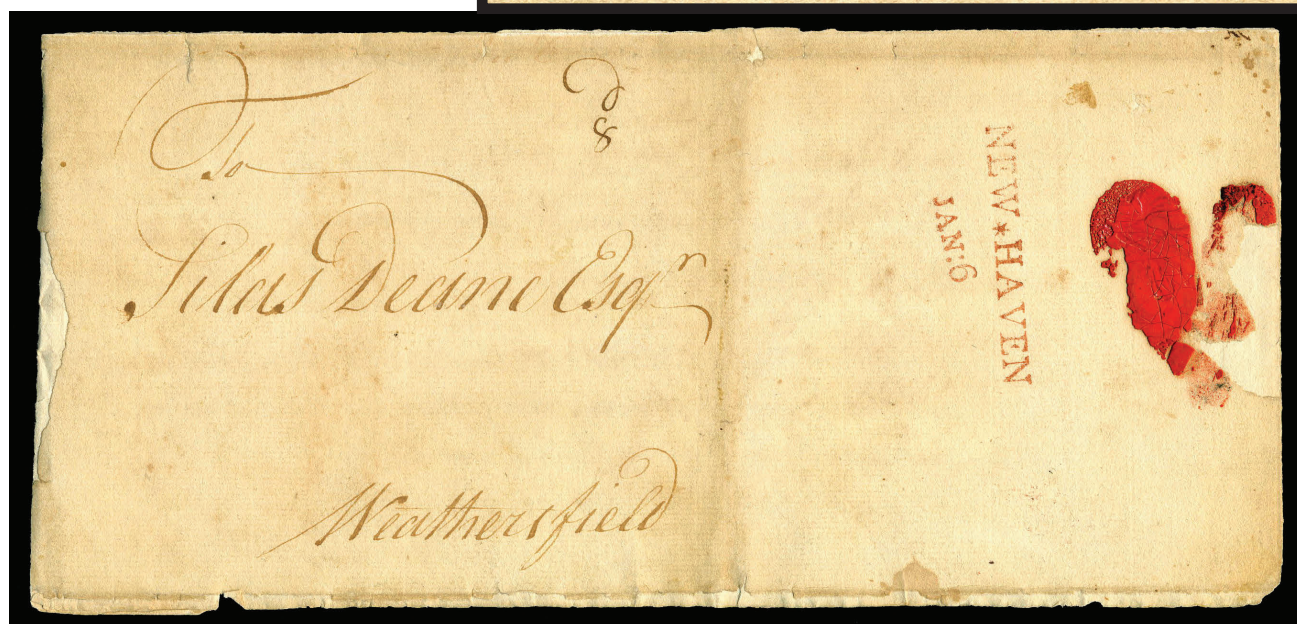 To
Silas Deane Esqr
Weathersfield
d
8
NEW*HAVEN
IAN:6